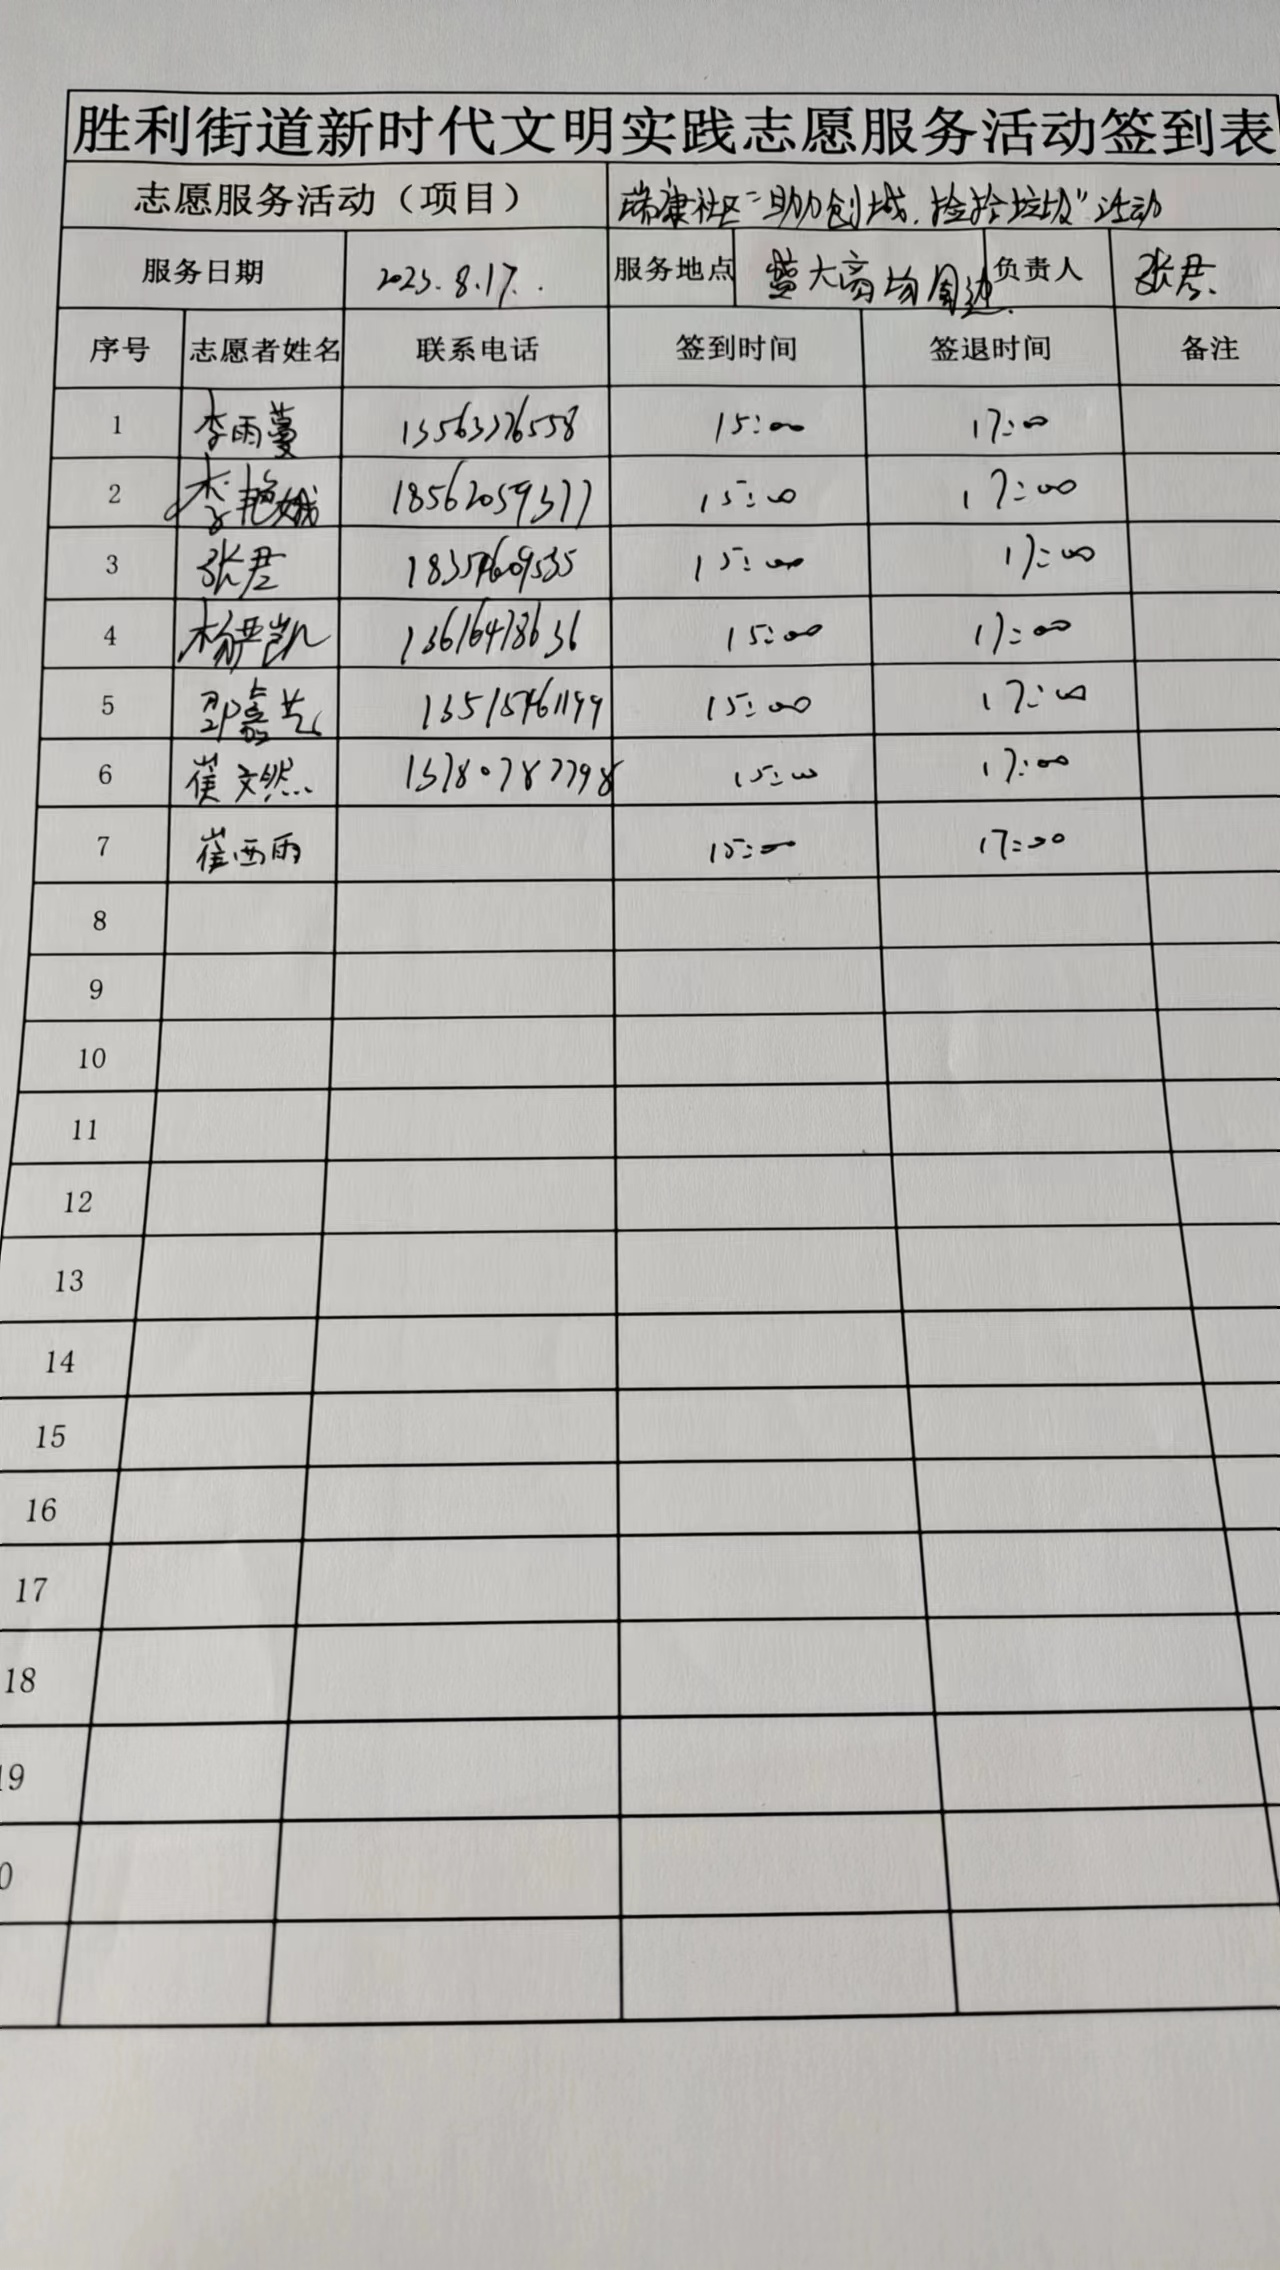 胜利街道新时代文明实践志愿服务活动签到表
志愿服务活动（项目） 瑞康社区“助力创城，捡拾垃圾”活动
服务日期 2023.8.17. 服务地点 蓝大商场周边 负责人 张君
序号 志愿者姓名 联系电话 签到时间 签退时间 备注
1 李雨蔓 13563376558 15:00 17:00
2 李艳娥 18562059377 15:00 17:00
3 张君 18354609535 15:00 17:00
4 杨亚凯 13616478636 15:00 17:00
5 邵嘉艺 13515461199 15:00 17:00
6 崔文然 13780787798 15:00 17:00
7 崔西雨 15:00 17:00
8
9
10
11
12
13
14
15
16
17
18
19
0